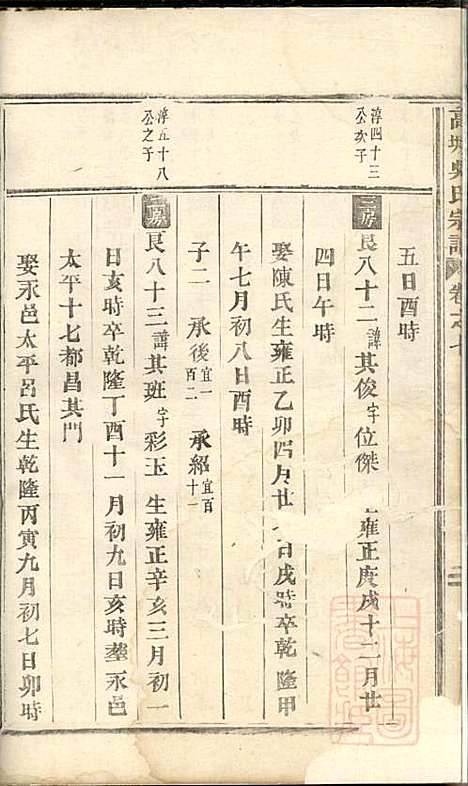 高城吳氏宗譜 卷之七
五日酉時
淳四十三
公次子
三房 良八十二 諱其俊 字位傑 生雍正庚戌十二月廿
四日午時
娶陳氏生雍正乙卯四月廿 日戌時卒乾隆甲
午七月初八日酉時
子二 承後 宜一百二 承紹 宜百十一
淳五十八
公之子
良八十三 諱其班 字彩玉 生雍正辛亥三月初一
日亥時卒乾隆丁酉十一月初九日亥時塟永邑
太平十七都昌其門
娶永邑太平呂氏生乾隆丙寅九月初七日卯時